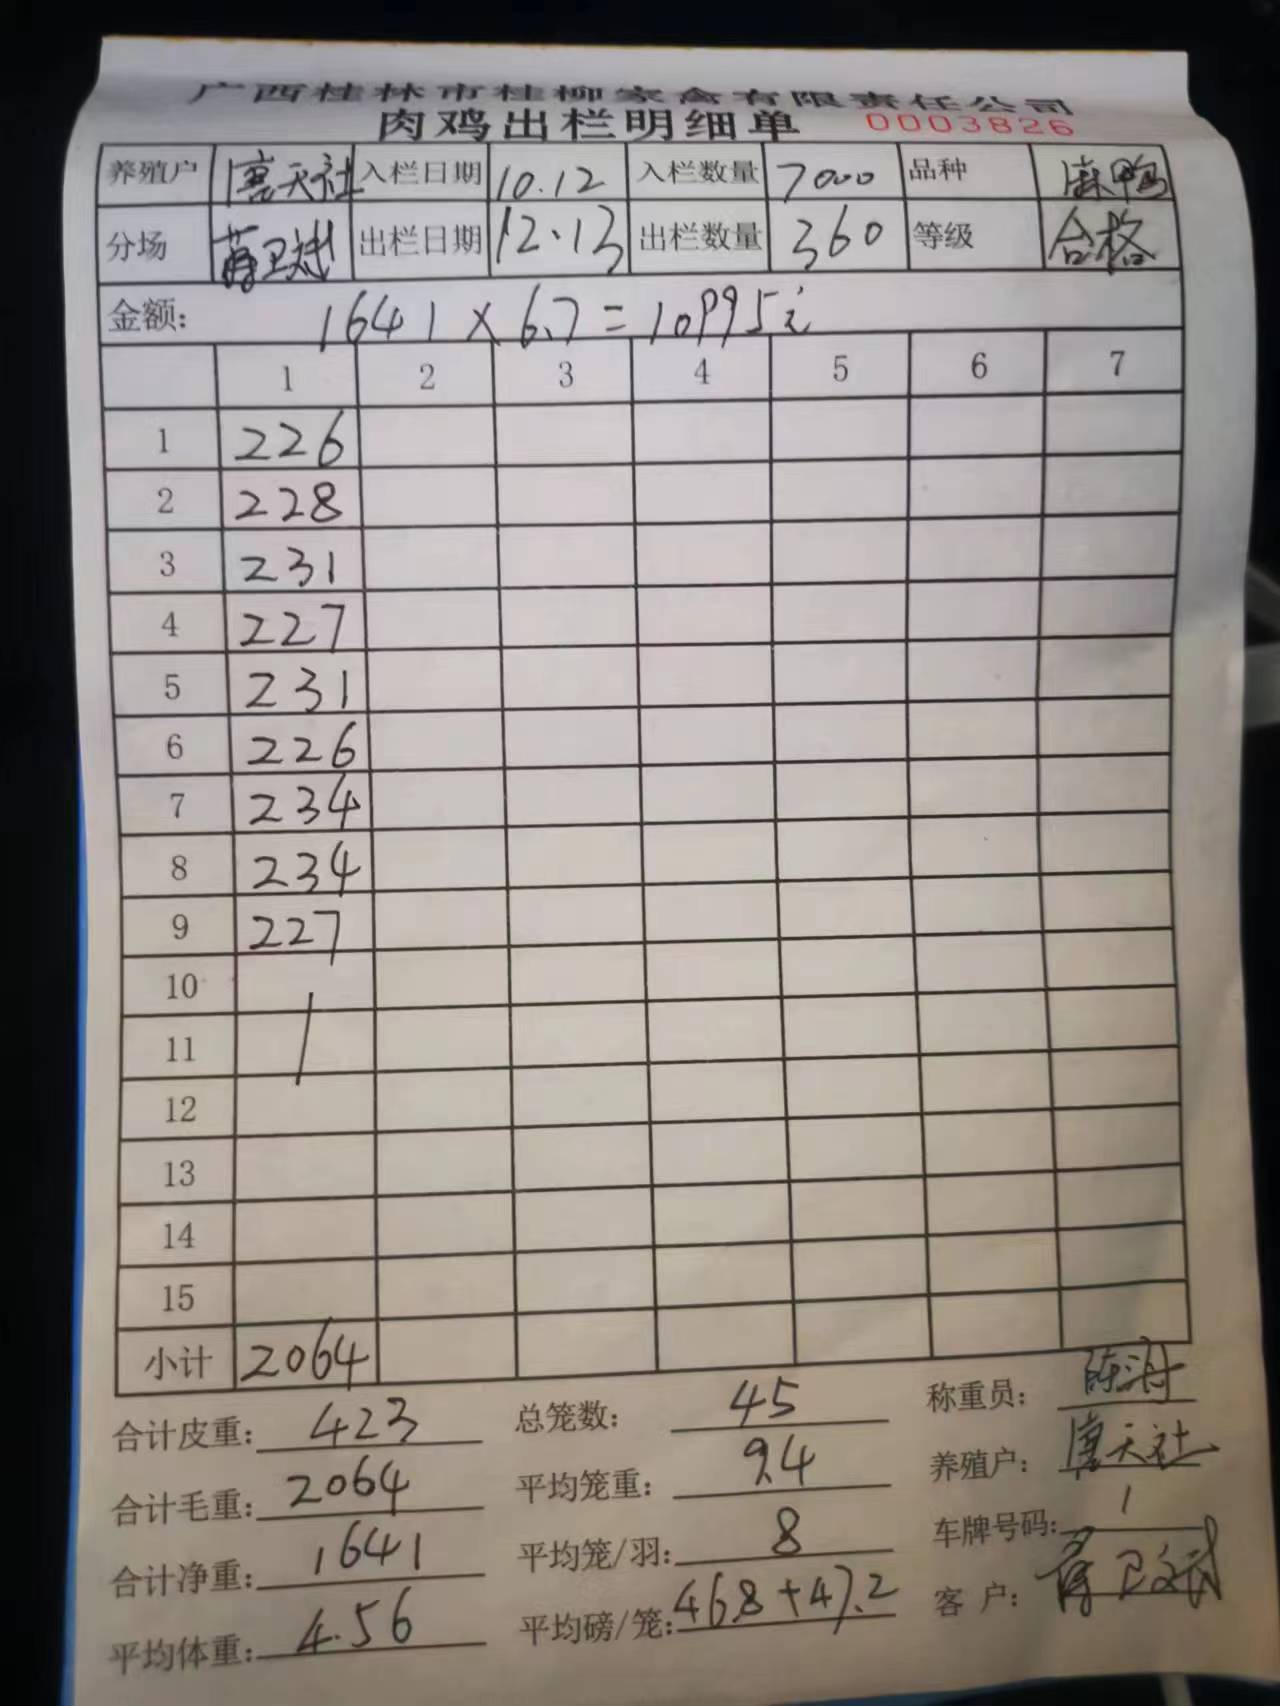 广西桂林市桂柳家禽有限责任公司
肉鸡出栏明细单 0003826
养殖户 唐天社 入栏日期 10.12 入栏数量 7000 品种 麻鸭
分场 蒋卫斌 出栏日期 12.13 出栏数量 360 等级 合格
金额: 1641 × 6.7 = 10995元
1 2 3 4 5 6 7
1 226
2 228
3 231
4 227
5 231
6 226
7 234
8 234
9 227
10
11
12
13
14
15
小计 2064
合计皮重: 423 总笼数: 45 称重员:
合计毛重: 2064 平均笼重: 9.4 养殖户: 唐天社
合计净重: 1641 平均笼/羽: 8 车牌号码: 1
平均体重: 4.56 平均磅/笼: 46.8+47.2 客户: